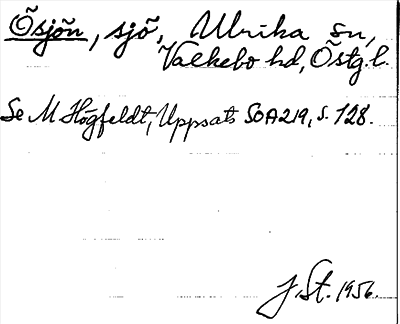 Õsjõn, sjõ, Ulrika sn,
Valkebo hd, Östg.l.
Se M Högfeldt, Uppsats SOA219, s. 128.
J. St. 1956.